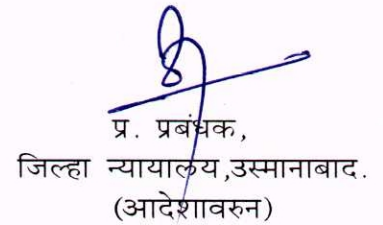 प्र. प्रबंधक,
जिल्हा न्यायालय,उस्मानाबाद.
(आदेशावरुन)